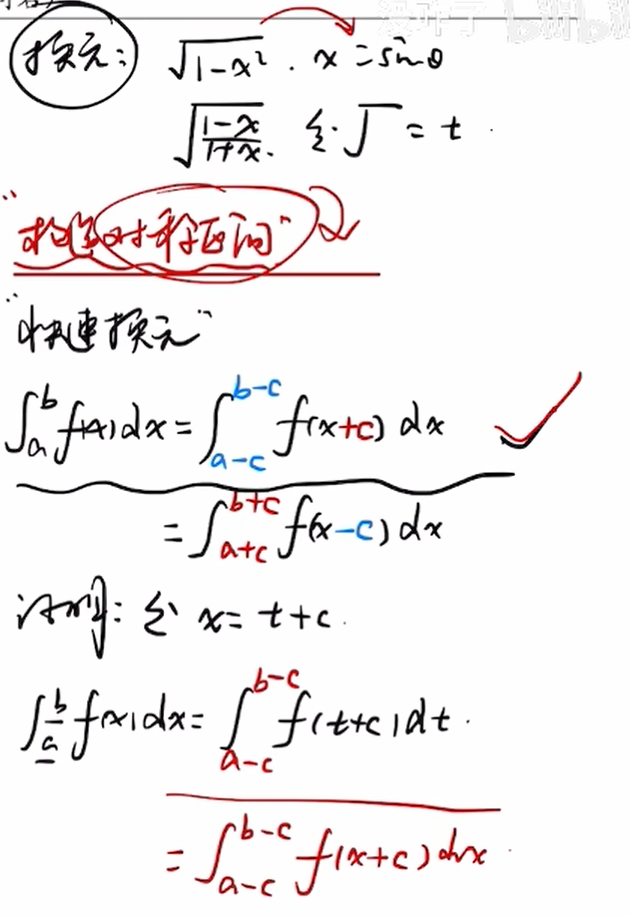 换元: √(1-x²) . x = sinθ
√((1-x)/(1+x)). 令. √ = t .
"构造对称区间"
"快速换元"
∫_a^b f(x)dx = ∫_{a-c}^{b-c} f(x+c) dx
= ∫_{a+c}^{b+c} f(x-c) dx
证明: 令 x = t+c .
∫_a^b f(x)dx = ∫_{a-c}^{b-c} f(t+c)dt .
= ∫_{a-c}^{b-c} f(x+c) dx .